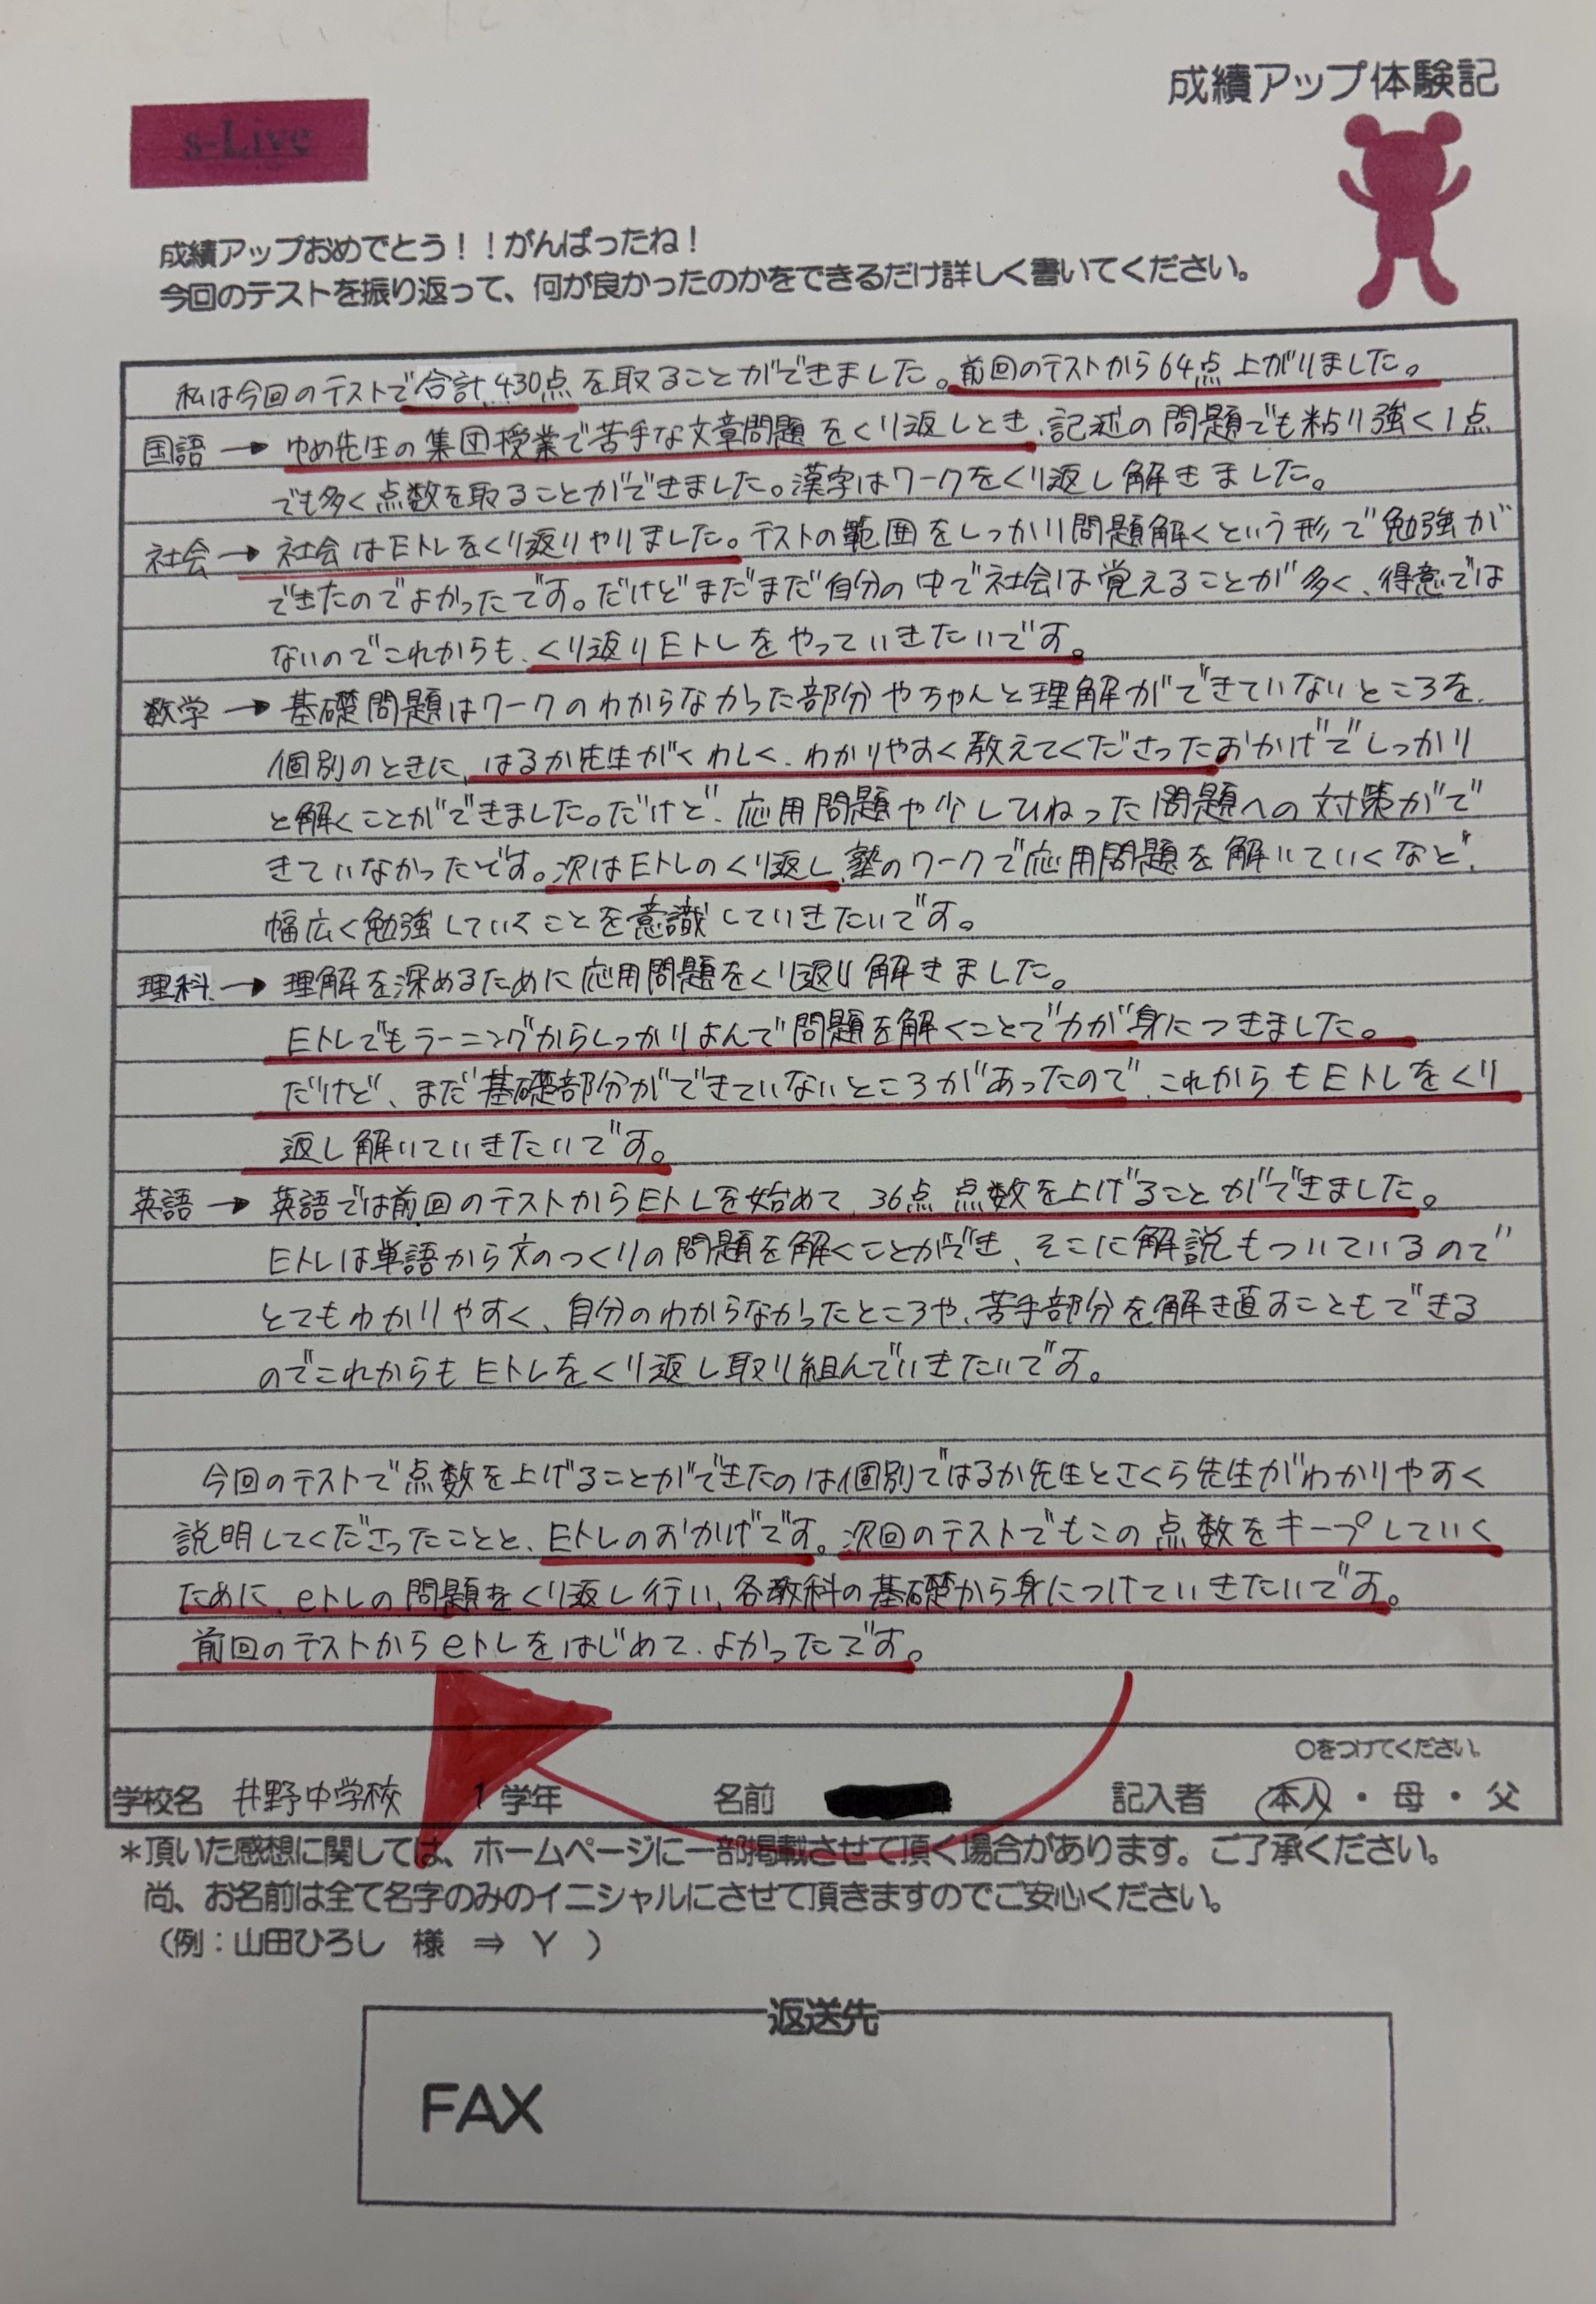 成績アップ体験記
s-Live
成績アップおめでとう！！がんばったね！
今回のテストを振り返って、何が良かったのかをできるだけ詳しく書いてください。
私は今回のテストで合計、430点を取ることができました。前回のテストから64点上がりました。
国語→ゆめ先生の集団授業で苦手な文章問題をくり返しとき、記述の問題でも粘り強く1点
でも多く点数を取ることができました。漢字はワークをくり返し解きました。
社会→社会はEトレをくり返りやりました。テストの範囲をしっかり問題解くという形で勉強が
できたのでよかったです。だけどまだまだ自分の中で社会は覚えることが多く、得意では
ないのでこれからも、くり返りEトレをやっていきたいです。
数学→基礎問題はワークのわからなかった部分やちゃんと理解ができていないところを、
個別のときに、はるか先生がくわしく、わかりやすく教えてくださったおかげでしっかり
と解くことができました。だけど、応用問題や少しひねった問題への対策がで
きていなかったです。次はEトレのくり返し、塾のワークで応用問題を解いていくなど、
幅広く勉強していくことを意識していきたいです。
理科→理解を深めるために応用問題をくり返り解きました。
Eトレでもラーニングからしっかりよんで問題を解くことで力が身につきました。
だけど、まだ基礎部分ができていないところがあったので、これからもEトレをくり
返し解いていきたいです。
英語→英語では前回のテストからEトレを始めて、36点点数を上げることができました。
Eトレは単語から文のつくりの問題を解くことができ、そこに解説もついているので
とてもわかりやすく、自分のわからなかったところや、苦手部分を解き直すこともできる
のでこれからもEトレをくり返し取り組んでいきたいです。
今回のテストで点数を上げることができたのは個別ではるか先生とさくら先生がわかりやすく
説明してくださったことと、Eトレのおかげです。次回のテストでもこの点数をキープしていく
ために、eトレの問題をくり返し行い、各教科の基礎から身につけていきたいです。
前回のテストからeトレをはじめて、よかったです。
○をつけてください。
学校名 井野中学校 1学年 名前 記入者 本人・母・父
＊頂いた感想に関しては、ホームページに一部掲載させて頂く場合があります。ご了承ください。
尚、お名前は全て名字のみのイニシャルにさせて頂きますのでご安心ください。
（例：山田ひろし 様 ⇒ Y ）
返送先
FAX